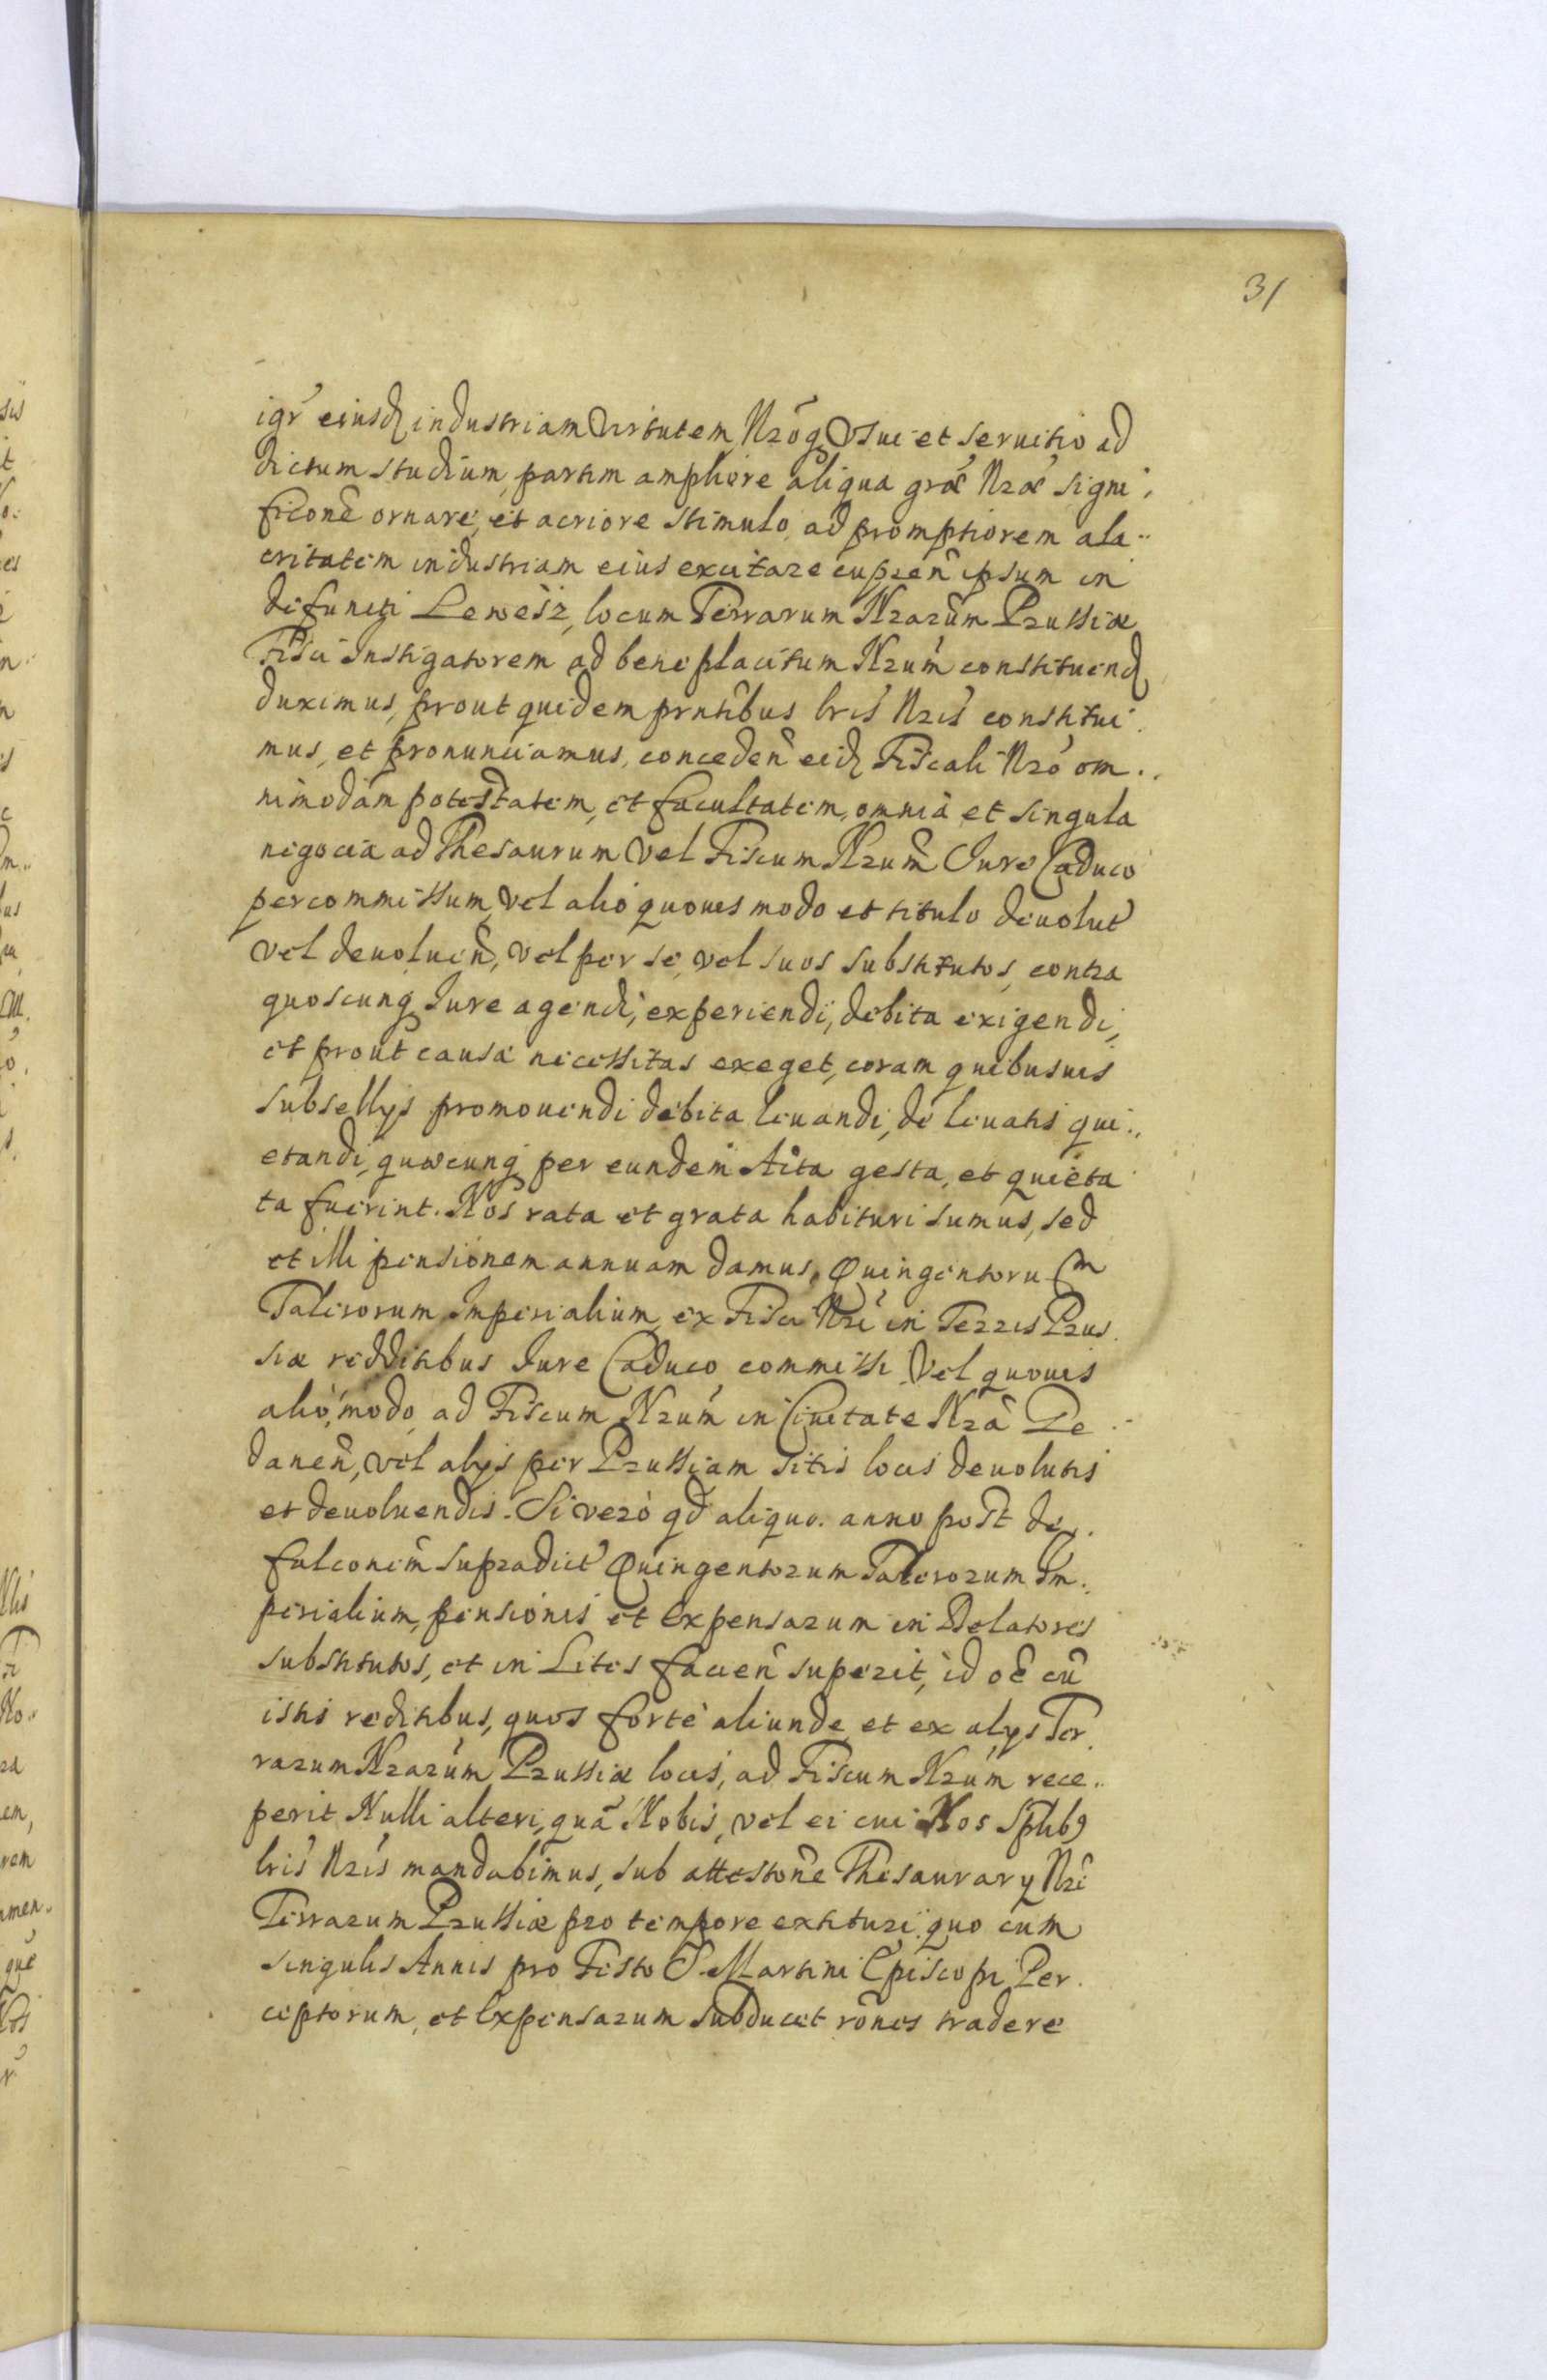 31
igr̃ eiusd industriam Virtutem Nrõq Vsui et seruitio ad
dictum studium, partim ampliore aliqua grã Nrã signi,
ficone ornare, et acriore stimulo, ad promptiorem ala..
critatem industriam eius excitare cupieñ ipsum in
defuncti Lewesz, locum Terrarum Nrarum Prussiæ
Fisci Instigatorem ad beneplacitum Nrum constituend
duximus, prout quidem prntibus lris Nris constitui.
mus, et pronunciamus, conceden eid Fiscali Nro om..
nimodam potestatem, et facultatem, omnia et singula
negocia ad Thesaurum Vel Fiscum Nrum Jure Caduco
per commissum, Vel alio quouis modo et titulo deuolut
vel deuoluen, vel per se, vel suos substitutos, contra
quoscunq Jure agendi, experiendi, debita exigendi,
et prout causæ necessitas exeget, coram quibusuis
subsellys promouendi debita leuandi, de leuatis qui..
etandi, quæcunq per eundem Acta gesta, et quieta
ta fuerint. Nos rata et grata habituri sumus, sed
et illi pensionem annuam damus, Quingentorum
Talerorum Imperialium, ex Fisci Nri in Terris Prus.
siæ redditibus Jure Caduco, commissi Vel quouis
alio, modo, ad Fiscum Nrum in Ciuitate Nra Ge..
daneñ, vel alys per Prussiam sitis locis deuolutis
et deuoluendis. Si vero qd aliquo. anno post de..
falconem supradict Quingentorum Talerorum Im.
perialium, pensionis et Expensarum in Delatores
substitutos, et in Lites facien superit, id oẽ cũ
istis reditibus, quos forte aliunde et ex alys Ter.
rarum Nrarum Prussiæ locis, ad Fiscum Nrum rece..
perit Nulli alteri, quã Nobis, vel ei cui Nos Splib9
lris Nris mandabimus, sub attestone Thesaurary Nri
Terrarum Prussiæ pro tempore extituri quo cum
singulis Annis pro Festo S. Martini Episcopi, Per.
ceptorum, et Expensarum subducet rones tradere